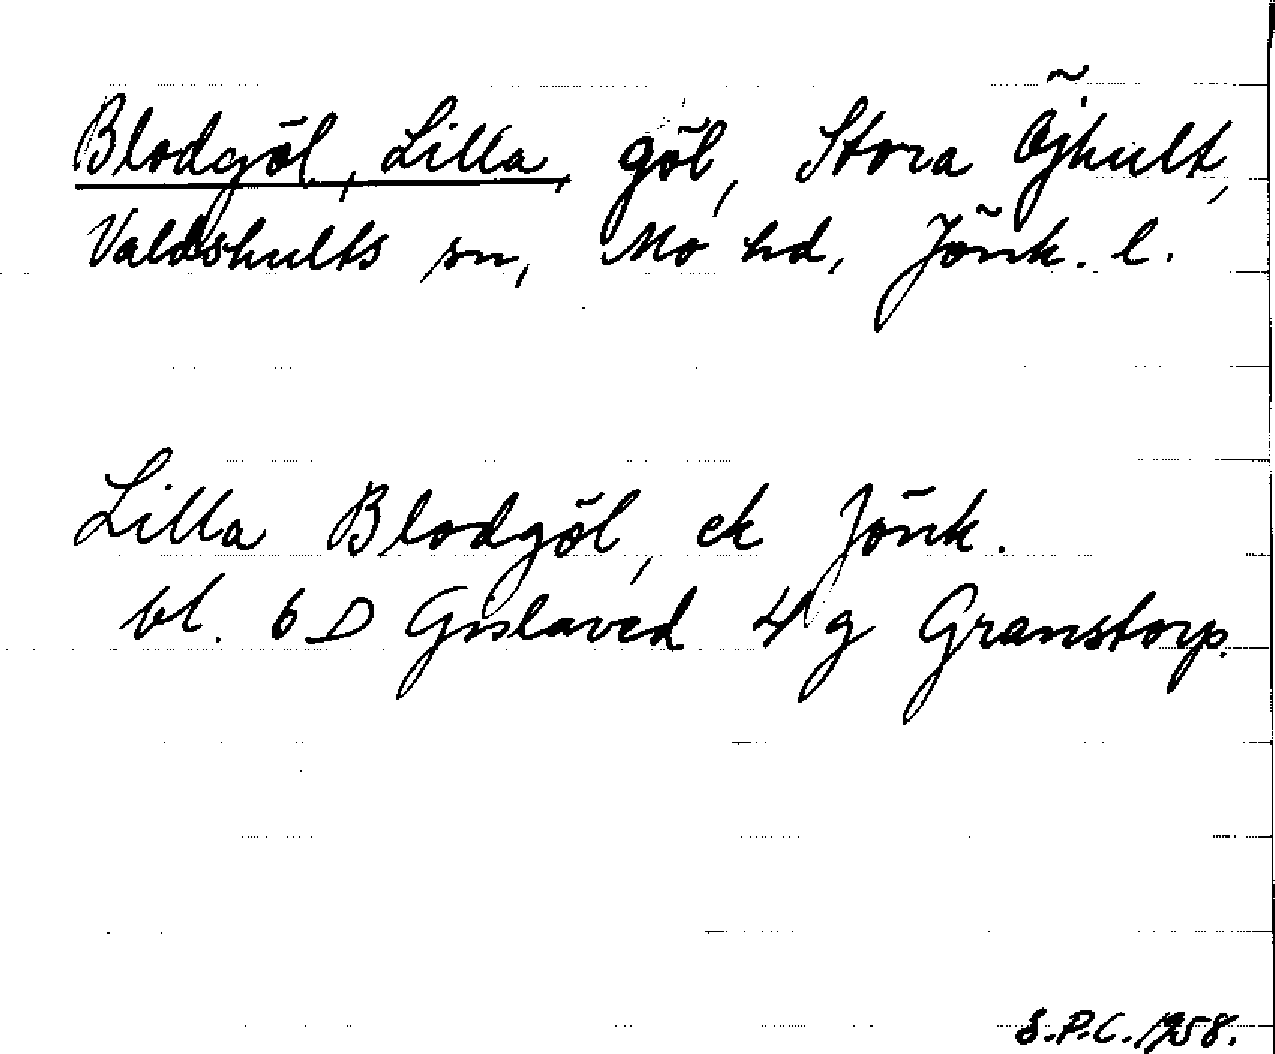 Blodgöl, Lilla, göl, Stora Öjhult,
Valdshults sn, Mo hd, Jönk. l.
Lilla Blodgöl, ek Jönk.
bl. 6 D Gislaved 4 g Granstorp.
S.P.C. 1958.